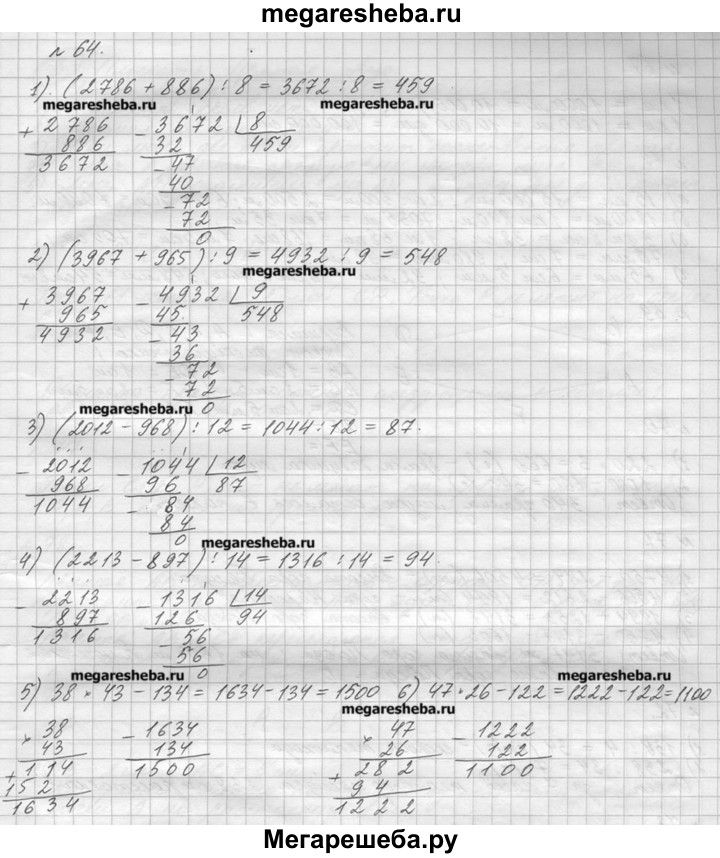 megaresheba.ru
№ 64.
1). (2786 + 886) : 8 = 3672 : 8 = 459
megaresheba.ru megaresheba.ru
+ 2786 - 3672 | 8
886 32 459
3672 - 47
40
- 72
72
0
2) (3967 + 965) : 9 = 4932 : 9 = 548
megaresheba.ru
+ 3967 - 4932 | 9
965 45 548
4932 - 43
36
- 72
72
0
megaresheba.ru
3) (2012 - 968) : 12 = 1044 : 12 = 87.
- 2012 - 1044 | 12
968 96 87
1044 - 84
84
0
megaresheba.ru
4) (2213 - 897) : 14 = 1316 : 14 = 94.
- 2213 - 1316 | 14
897 126 94
1316 - 56
56
0
megaresheba.ru megaresheba.ru
5) 38 × 43 - 134 = 1634 - 134 = 1500 6) 47 · 26 - 122 = 1222 - 122 = 1100
megaresheba.ru
× 38 - 1634 × 47 - 1222
43 134 26 122
+ 114 1500 + 282 1100
152 94
1634 1222
Мегарешеба.ру